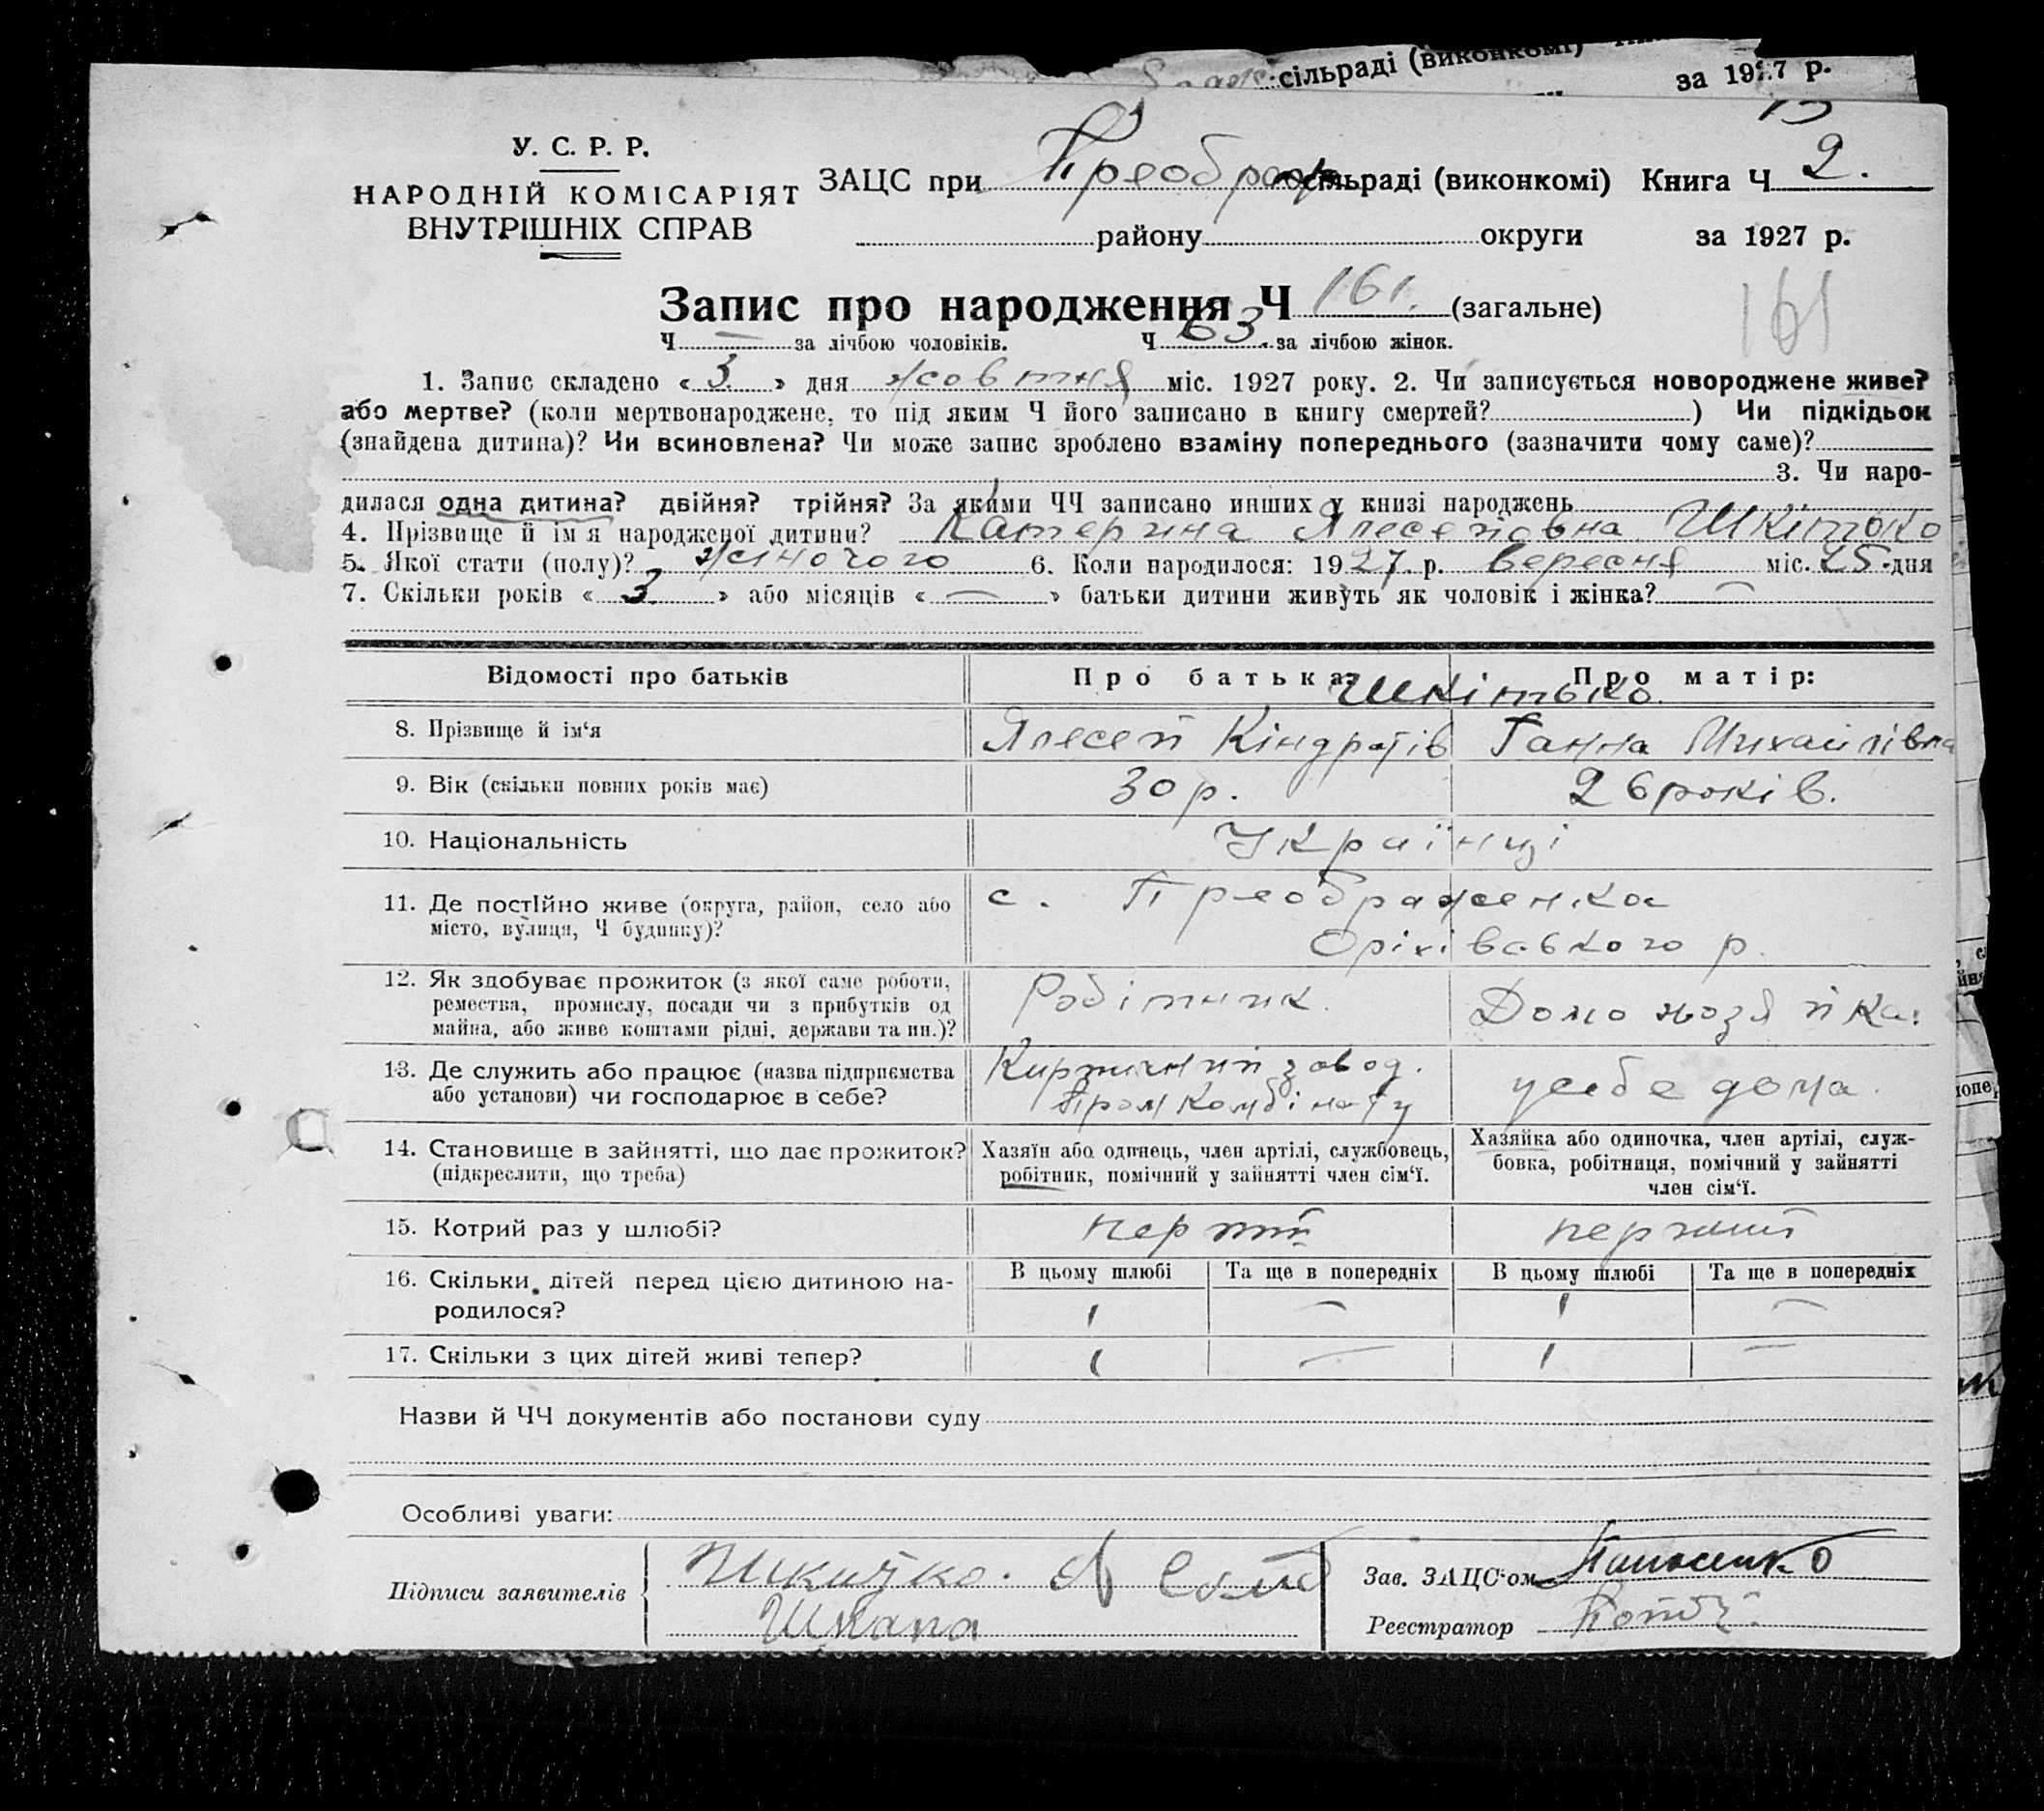 сільраді (виконкомі)
за 1927 р.
У. С. Р. Р.
НАРОДНІЙ КОМІСАРІЯТ
ВНУТРІШНІХ СПРАВ
ЗАЦС при Преображ сільраді (виконкомі) Книга Ч 2.
району округи за 1927 р.
Запис про народження Ч 161. (загальне) 161
Ч — за лічбою чоловіків. Ч 63 за лічбою жінок.
1. Запис складено « 3 » дня жовтня міс. 1927 року. 2. Чи записується новороджене живе?
або мертве? (коли мертвонароджене, то під яким Ч його записано в книгу смертей? ) Чи підкідьок
(знайдена дитина)? Чи всиновлена? Чи може запис зроблено взаміну попереднього (зазначити чому саме)?
3. Чи наро-
дилася одна дитина? двійня? трійня? За якими ЧЧ записано инших у книзі народжень
4. Прізвище й ім'я народженої дитини? Катерина Ялесеївна Шкітько
5. Якої стати (полу)? жіночого 6. Коли народилося: 1927 р. вересня міс. 25 дня
7. Скільки років « 3 » або місяців « — » батьки дитини живуть як чоловік і жінка? —
Відомості про батьків Про батька: Про матір:
Шкітько.
8. Прізвище й ім'я Ялесей Кіндратів Ганна Михайлівна
9. Вік (скільки повних років має) 30 р. 26 років.
10. Національність Українці
11. Де постійно живе (округа, район, село або
місто, вулиця, Ч будинку)?
с. Преображенка
Оріхівського р.
12. Як здобуває прожиток (з якої саме роботи,
ремества, промислу, посади чи з прибутків од
майна, або живе коштами рідні, держави та ин.)?
Робітник. Домохозяйка.
13. Де служить або працює (назва підприємства
або установи) чи господарює в себе?
Кирпичний завод.
Промкомбінату
у себе дома.
14. Становище в зайнятті, що дає прожиток?
(підкреслити, що треба)
Хазяїн або одинець, член артілі, службовець,
робітник, помічний у зайнятті член сім'ї.
Хазяйка або одиночка, член артілі, служ-
бовка, робітниця, помічний у зайнятті
член сім'ї.
15. Котрий раз у шлюбі? перший перший
16. Скільки дітей перед цією дитиною на-
родилося?
В цьому шлюбі Та ще в попередніх В цьому шлюбі Та ще в попередніх
1 — 1 —
17. Скільки з цих дітей живі тепер? 1 — 1 —
Назви й ЧЧ документів або постанови суду
Особливі уваги:
Підписи заявителів
Шкитько.
Шкапа
Зав. ЗАЦС'ом
Реєстратор